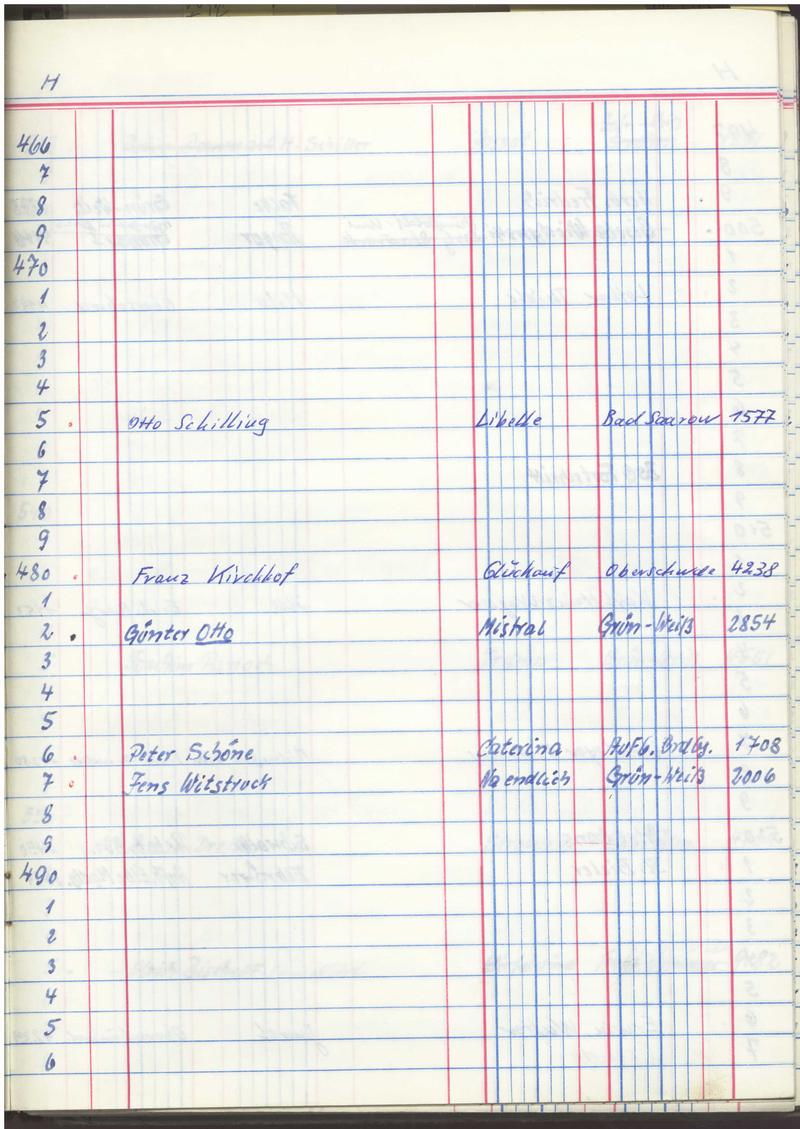 H
466
7
8
9
470
1
2
3
4
5 Otto Schilling Libelle Bad Saarow 1577
6
7
8
9
480 Franz Kirchhof Glückauf Oberschwde 4238
1
2 Günter Otto Mistral Grün-Weiß 2854
3
4
5
6 Peter Schöne Caterina Aufb. Brdbg. 1708
7 Jens Witstruck Na endlich Grün-Weiß 2006
8
9
490
1
2
3
4
5
6